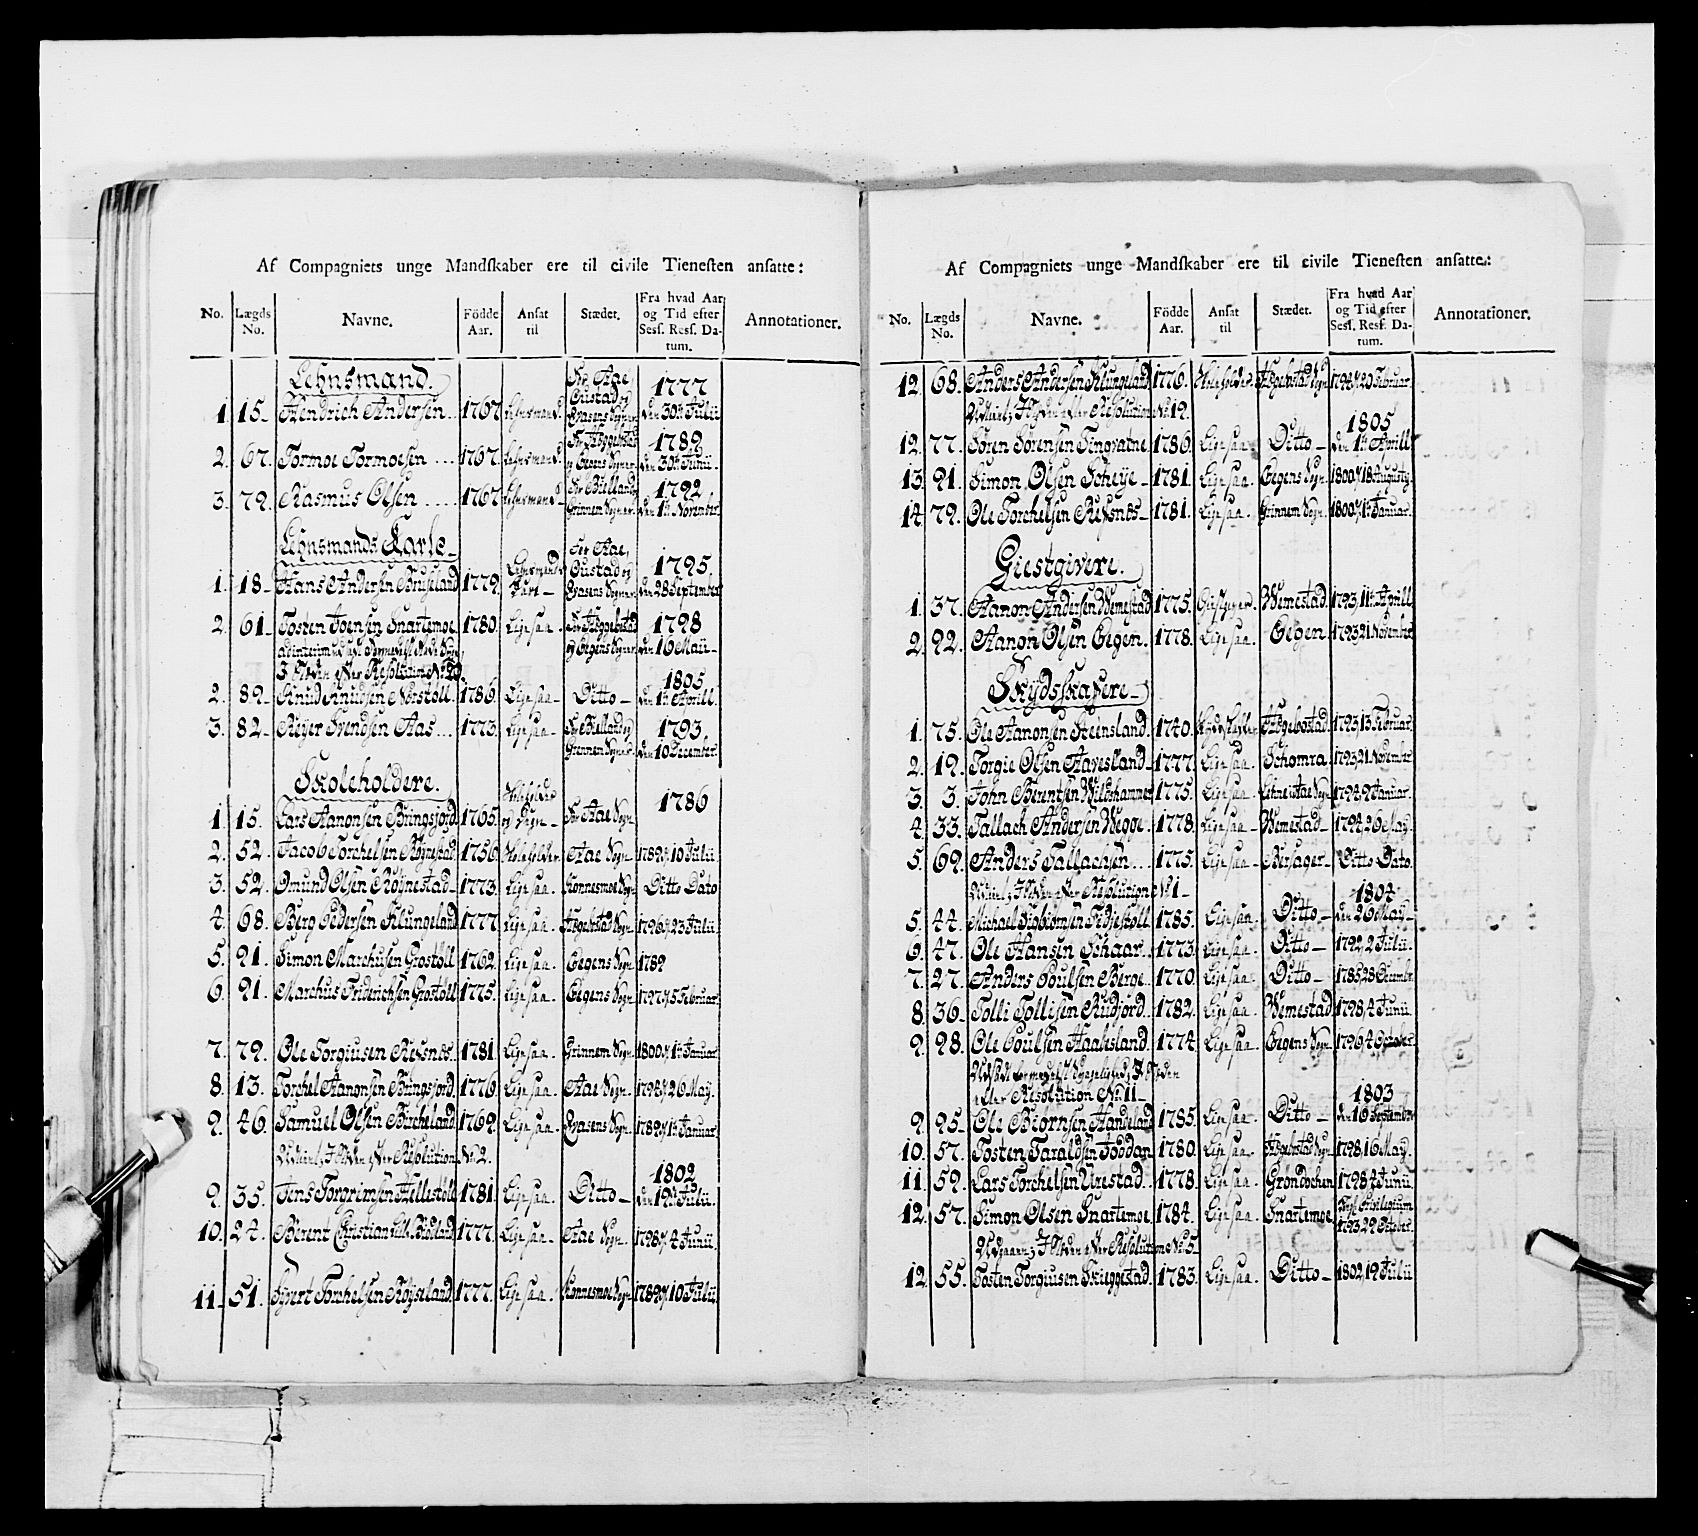 Af Compagniets unge Mandskaber ere til civile Tienesten ansatte:
No. Lægds No. Navne. Födde Aar. Ansat til Stædet. Fra hvad Aar og Tid efter Sess. Ress. Datum. Annotationer.
Lehnsmand.
1. 15. Hendrich Andersen 1767 Lehnsmand. For Aae, Custad og Qvasens Sogner 1777 den 30te Julii
2. 67. Tormoe Tormoesen 1767. Lehnsmand. For Hæggebstad og Eegens Sogner 1789 den 30te Junii
3. 79. Rasmus Olsen 1767 Lehnsmand For Bielland Grinnem Sogner 1792 den 1te November
Lehnsmands Karle
1. 18. Hans Andersen Bruseland 1779. Lehnsmands Karl For Aae, Custad og Qvasens Sogner 1795. den 28 September
2. 61. Tosten Joensen Snartemoe 1780. Ligesaa. For Hæggebstad og Eegens Sogner 1798 den 16 Maii
3 Aften efter Resolution No 20.
2. 89. Knud Knudsen Nerstöll. 1786. Ligesaa Ditto 1805 den 1te Aprill.
3. 82. Reyer Svendsen Aas 1773. Ligesaa For Bielland og Grennem Sogner 1793. den 10 December
Skoleholdere.
1. 15. Lars Aanonsen Bringsjord 1765. Skoleholder For Aae Sogn 1786
2. 52. Jacob Torchelsen Röynestad 1756 Skoleholder Aae Sogn 1789 10 Julii
3. 52. Omund Olsen Röynestad 1773. Ligesaa. Konnesmoe Sogn Ditto Dato
4. 68. Berg Pedersen Klungeland 1777. Ligesaa. Hægebstad Sogn 1796 23 Julii
5. 91. Simon Marchusen Grostöll 1762. Ligesaa. Eegens Sogn 1789
6. 91. Marchus Friderichsen Grostöll 1775. Ligesaa. Eegens Sogn 1797 5 Februar
7. 79. Ole Torgiusen Refsnes 1781 Ligesaa. Grinnem Sogn 1800 1te Januar
8. 13. Torchel Aanonsen Bringsjord 1776. Ligesaa. Aae Sogn 1798 26 May.
9. 46. Samuel Olsen Bircheland 1769. Ligesaa. Qvasens Sogn 1789 1te Januar
efter Resolution No 2.
9. 35. Jens Torgrimsen Hellestöll 1781. Ligesaa. Ditto 1802 den 19 Julii
10. 24. Berent Christian 1777. Ligesaa Aae Sogn 1798 4 Junii.
11. 51. Sivert Torchelsen Röyseland 1777. Ligesaa. Konnesmoe Sogn 1789 10 Julii
Af Compagniets unge Mandskaber ere til civile Tienesten ansatte:
No. Lægds No. Navne. Födde Aar. Ansat til Stædet. Fra hvad Aar og Tid efter Sess. Ress. Datum. Annotationer.
12. 68. Anders Andersen Klungeland 1776. Skoleholder Hægebstad Sogn 1794 20 Februar
efter Resolution No 19.
12. 77. Sören Sörensen Tingvatne 1786. Ligesaa. Ditto 1805 den 1te Aprill
13. 91. Simon Olsen Scheye 1781. Ligesaa. Eegens Sogn 1800 18 Augusty.
14. 79. Ole Torchelsen Refsnes 1781. Ligesaa. Grinnem Sogn 1800 1te Januar
Giestgivere.
1. 37. Aanon Andersen Vemestad 1775. Giestgiver Vemestad. 1793 11te Aprill
2. 92. Aanon Olsen Eegen. 1778. Ligesaa. Eegen 1793 21 November
Skydsskafere
1. 75. Ole Aanonsen Steensland 1740. Skydsskaffer Hægebostad. 1793 13 Februar
2. 19. Torgie Olsen Aavesland 1777. Ligesaa. Schomra 1793 21 November
3. 3. John Berentsen Wibshammer 1775. Ligesaa. Lehne i Aae Sogn 1794 9 Januar.
4. 33. Tallach Andersen Wegge. 1778. Ligesaa Wemestad 1794 26 May.
5. 69. Anders Tallachsen 1775. Ligesaa Birsager Ditto Dato
efter Resolution No 1
5. 44. Michael Sigbiörnsen Tidjestöll 1785. Ligesaa. Ditto 1804 den 26 May
6. 47. Ole Hansen Schaar 1773. Ligesaa. Ditto 1792 2 Julii
7. 27. Anders Poulsen Berge 1770. Ligesaa. Ditto 1785 28 Decembr
8. 36. Tolli Tollisen Rudjord. 1782. Ligesaa. Wemestad 1798 4 Junii
9. 98. Ole Poulsen Haalesland 1774. Ligesaa. Eegens Sogn 1796 4 October
efter Resolution No 11
9. 95. Ole Biörnsen Haadeland 1785. Ligesaa. Ditto 1803 den 16 September
10. 57. Tosten Taraldsen Foddan 1780. Ligesaa. Hægebstad Sogn 1798 16 May.
11. 59. Lars Torchelsen Virestad. 1778. Ligesaa. Gröndochen 1798 4 Junii
12. 57. Simon Olsen Snartemoe 1784. Ligesaa. Snartemoe Privilegium 1793 29 October
Udgaaen efter Resolution No 5
12. 55. Tosten Torgiusen Skieggestad. 1783. Ligesaa. Ditto 1802 19 Julii